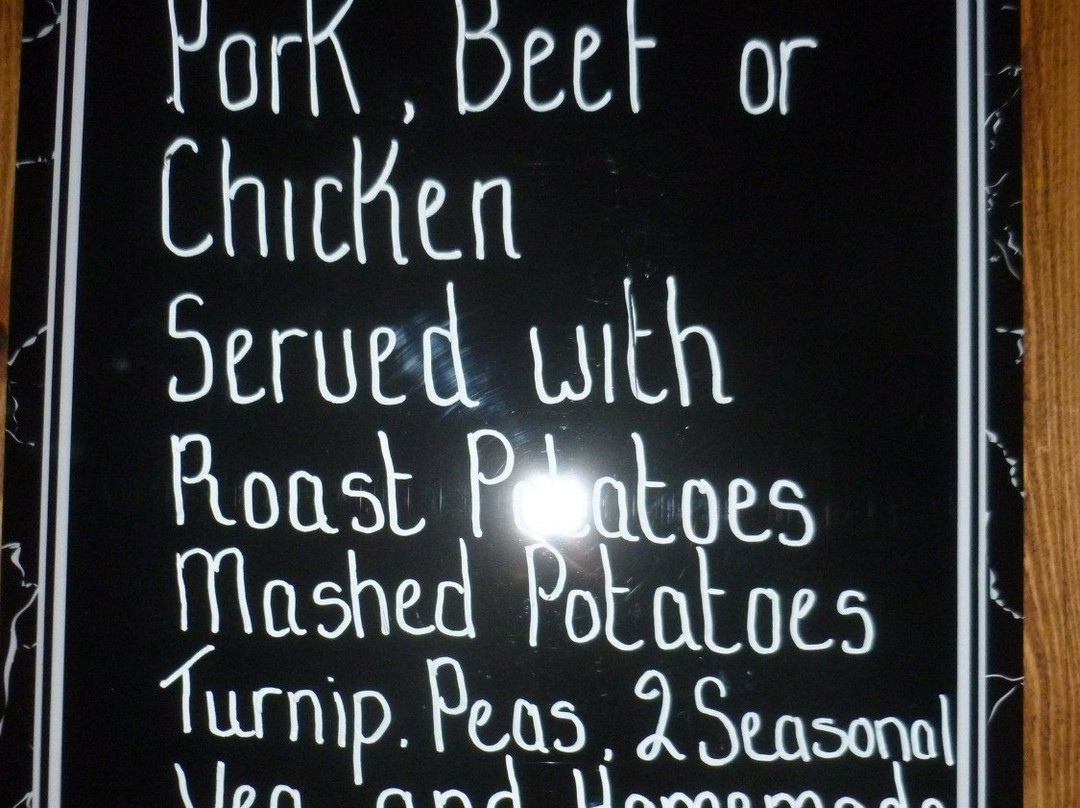 Pork, Beef or
Chicken
Served with
Roast Potatoes
Mashed Potatoes
Turnip. Peas, 2 Seasonal
Veg and Homemade